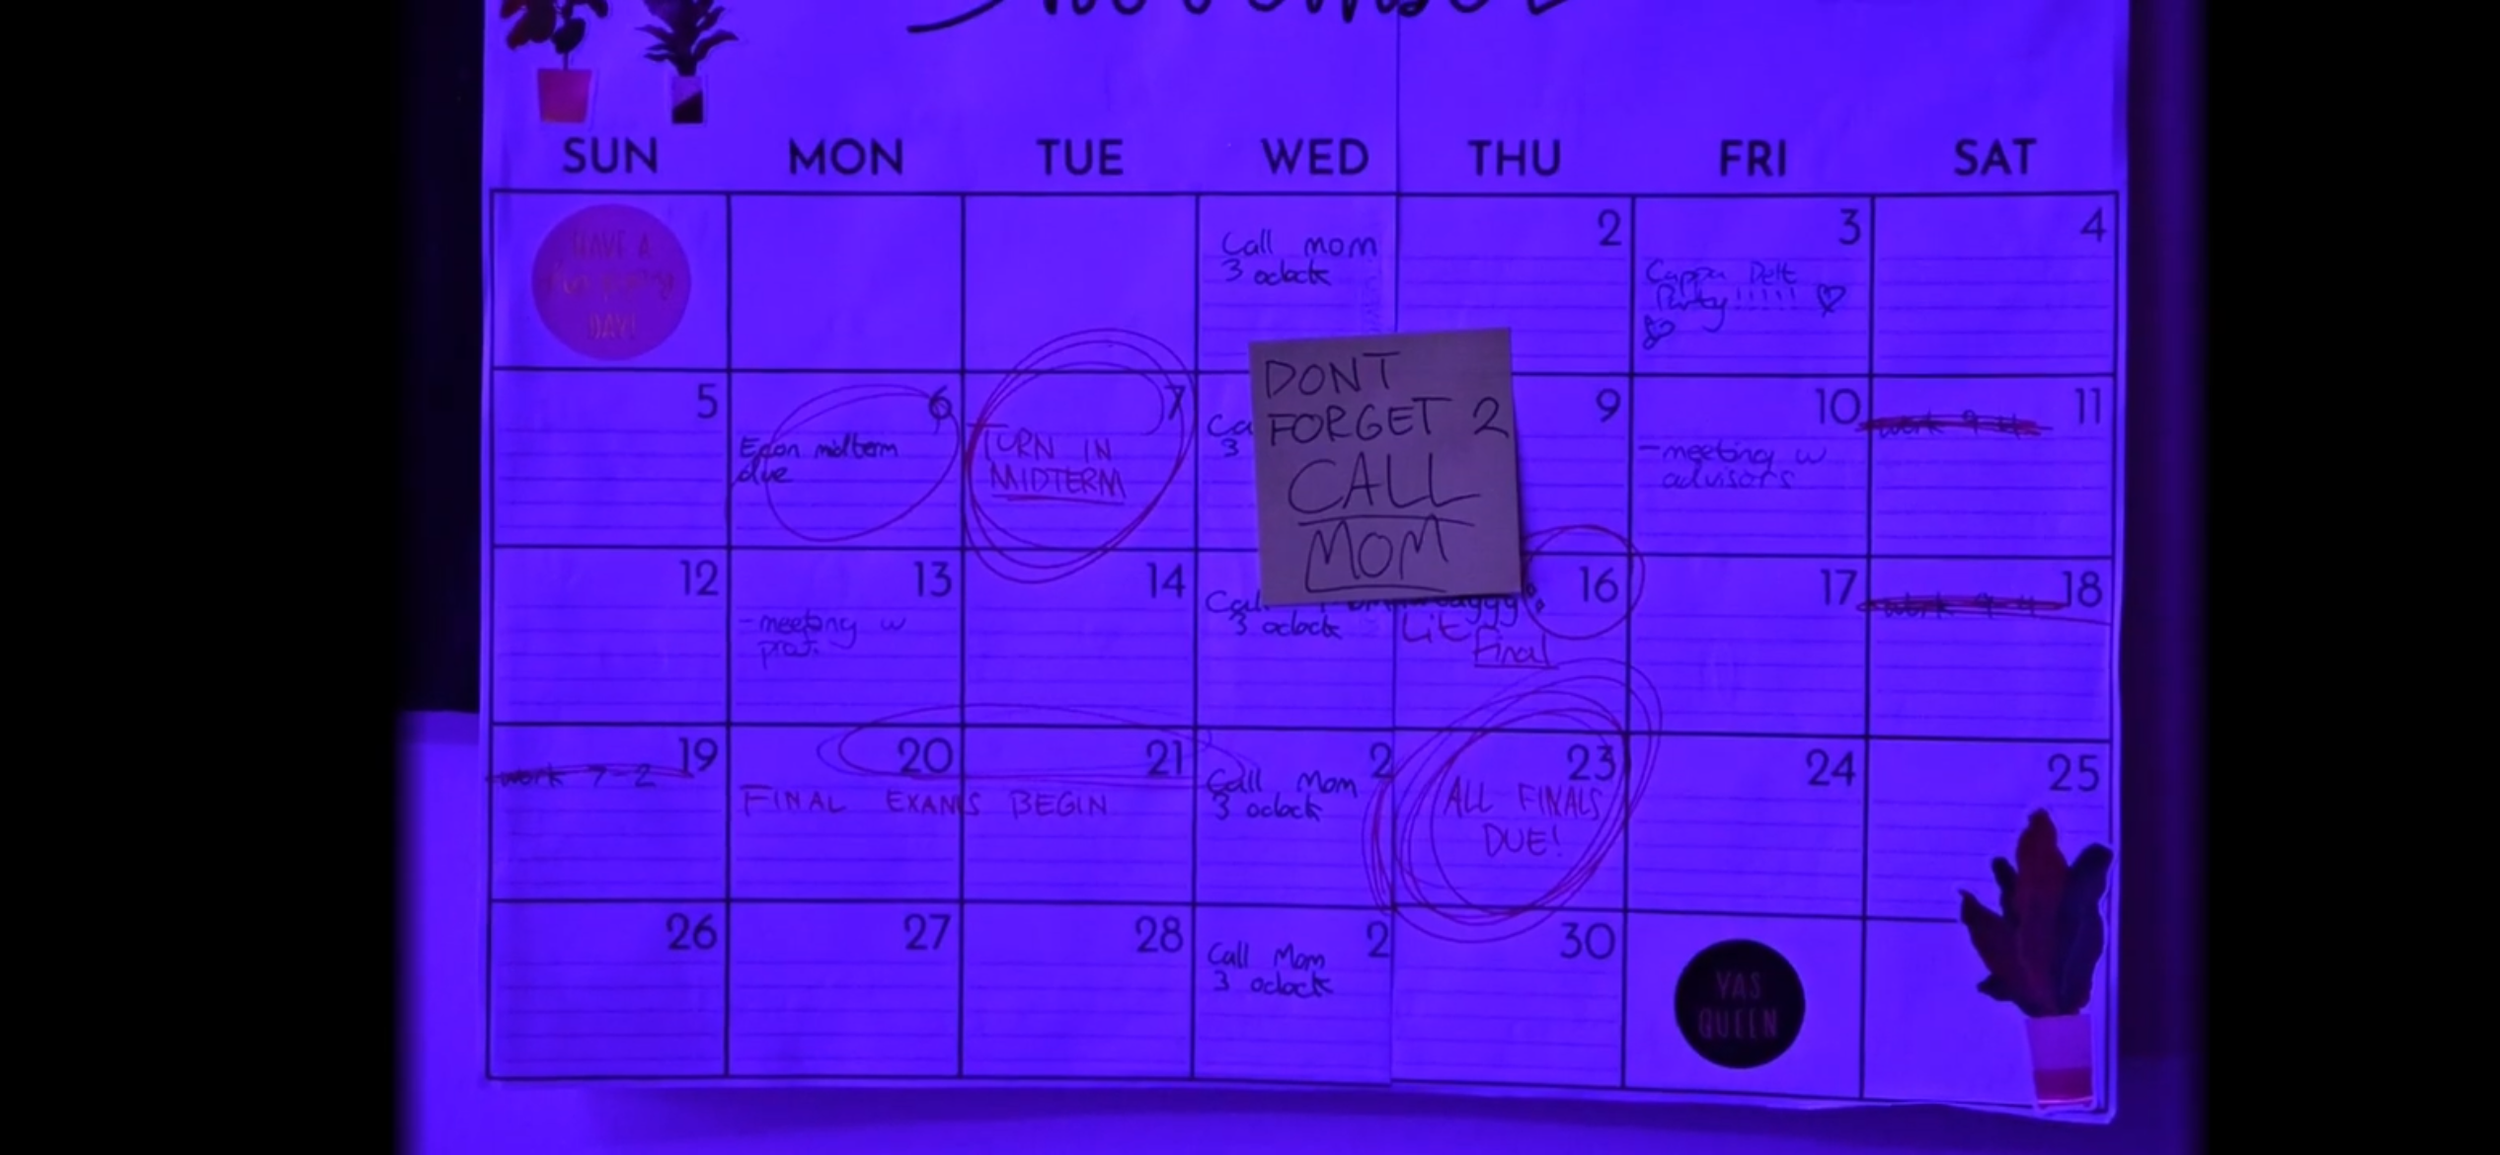 November
SUN MON TUE WED THU FRI SAT
HAVE A
DAY!
Call mom
3 oclock
2
3
Cappa Delt
Party!!!!! ♡
4
5
6
Econ midterm
due
7
TURN IN
MIDTERM
Ca
3
DONT
FORGET 2
CALL
MOM
9
10
-meeting w
advisors
11
work 9-4
12
13
-meeting w
prof.
14
Call Mom
3 oclock
16
Lit
Final
17
18
work 9-4
19
work 7-2
20
21
FINAL EXAMS BEGIN
2
Call Mom
3 oclock
23
ALL FINALS
DUE!
24
25
26
27
28
2
Call Mom
3 oclock
30
YAS
QUEEN